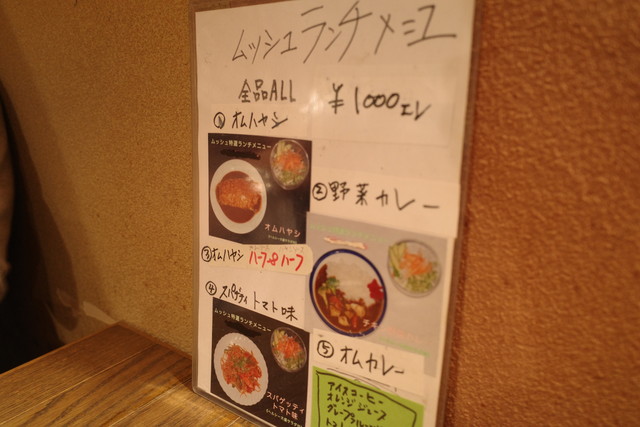 ムッシュランチメニュー
全品ALL ¥1000エン
① オムハヤシ
ムッシュ特選ランチメニュー
オムハヤシ
② 野菜カレー
③ オムハヤシ ハーフ&ハーフ
④ スパゲティ トマト味
ムッシュ特選ランチメニュー
スパゲッティ
トマト味
⑤ オムカレー
アイスコーヒー
オレンジジュース